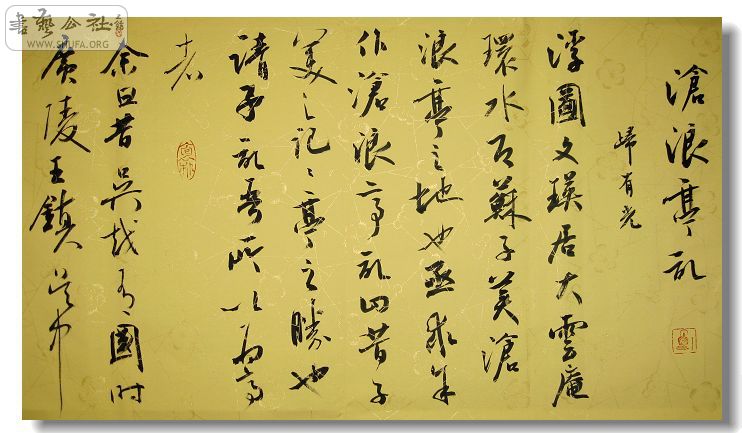 滄浪亭記
歸有光
浮圖文瑛居大雲庵
環水即蘇子美滄
浪亭之地也亟求余
作滄浪亭記曰昔子
美之記〻亭之勝也
請子記吾所以為亭
者
余曰昔吳越有國時
廣陵王鎮吳中
書藝公社
WWW.SHUFA.ORG